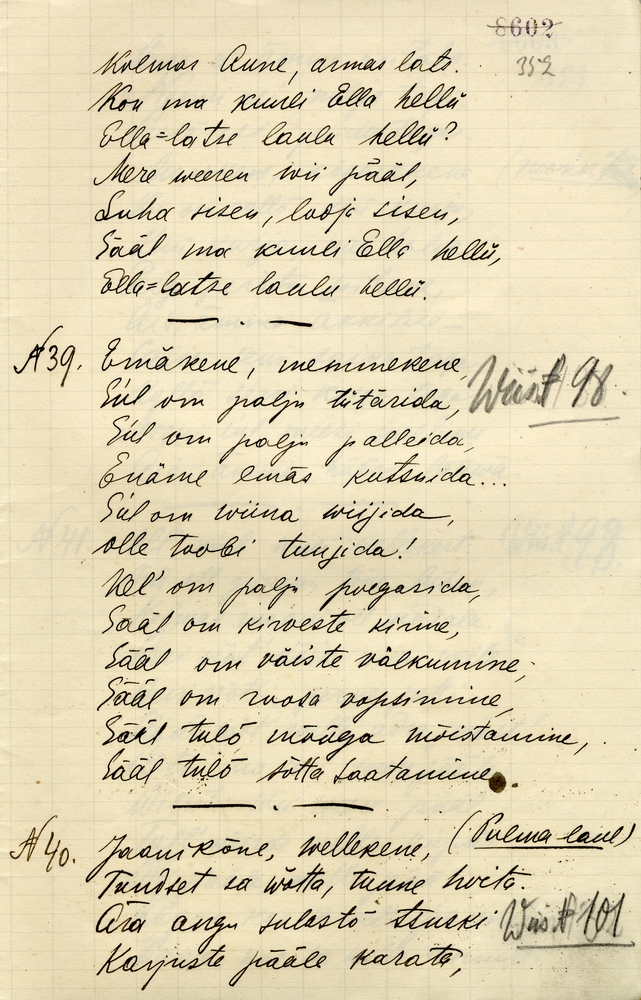 8602
352
Kolmas Anne, armas lats.
Kon ma kuuli Ella hellü
Ella-latse laulu hellü?
Mere weeren wii pääl,
Luha sisen, looja sisen,
Sääl ma kuuli Ella hellü,
Ella-latse laulu hellü.
N 39. Emäkene, memmekene,
Sül om palju tütärida, Wiis N 98.
Sül om palju palleida,
Enäme emäs kutsuida...
Sül om wiina wiijida,
olle toobi tuujida!
Kel' om palju poegasida,
Sääl om kirweste kirine,
Sääl om väiste välkumine,
Sääl om roosa ropsimine,
Sääl tulõ mõõga mõistamine,
Sääl tulõ sõtta saatamine.
N 40. Jaanikõne, wellekene, (Pulma laul)
Tundset sa wõtta, tunne hoita.
Ära angu sulastõ tsuski Wiis N 101
Karjuste pääle karata,